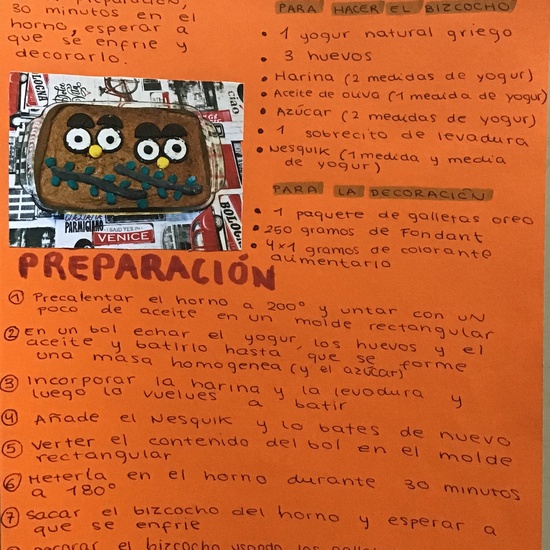 preparación,
30 minutos en el
horno, esperar a
que se enfrie y
decorarlo.
PARA HACER EL BIZCOCHO
• 1 yogur natural griego
• 3 huevos
• Harina (2 medidas de yogur)
• Aceite de oliva (1 medida de yogur)
• Azúcar (2 medidas de yogur)
• 1 sobrecito de levadura
• Nesquik (1 medida y media
de yogur)
PARA LA DECORACIÓN
• 1 paquete de galletas oreo
• 250 gramos de Fondant
• 4x1 gramos de colorante
alimentario
ciao
PARMIGIANO
I SAID YES IN
VENICE
PREPARACIÓN
① Precalentar el horno a 200° y untar con un
poco de aceite en un molde rectangular
② En un bol echar el yogur, los huevos y el
aceite y batirlo hasta que se forme
una masa homogenea (y el azúcar)
③ Incorporar la harina y la levadura y
luego lo vuelves a batir
④ Añade el Nesquik y lo bates de nuevo
⑤ Verter el contenido del bol en el molde
rectangular
⑥ Meterla en el horno durante 30 minutos
a 180°
⑦ Sacar el bizcocho del horno y esperar a
que se enfrie
decorar el bizcocho usando las